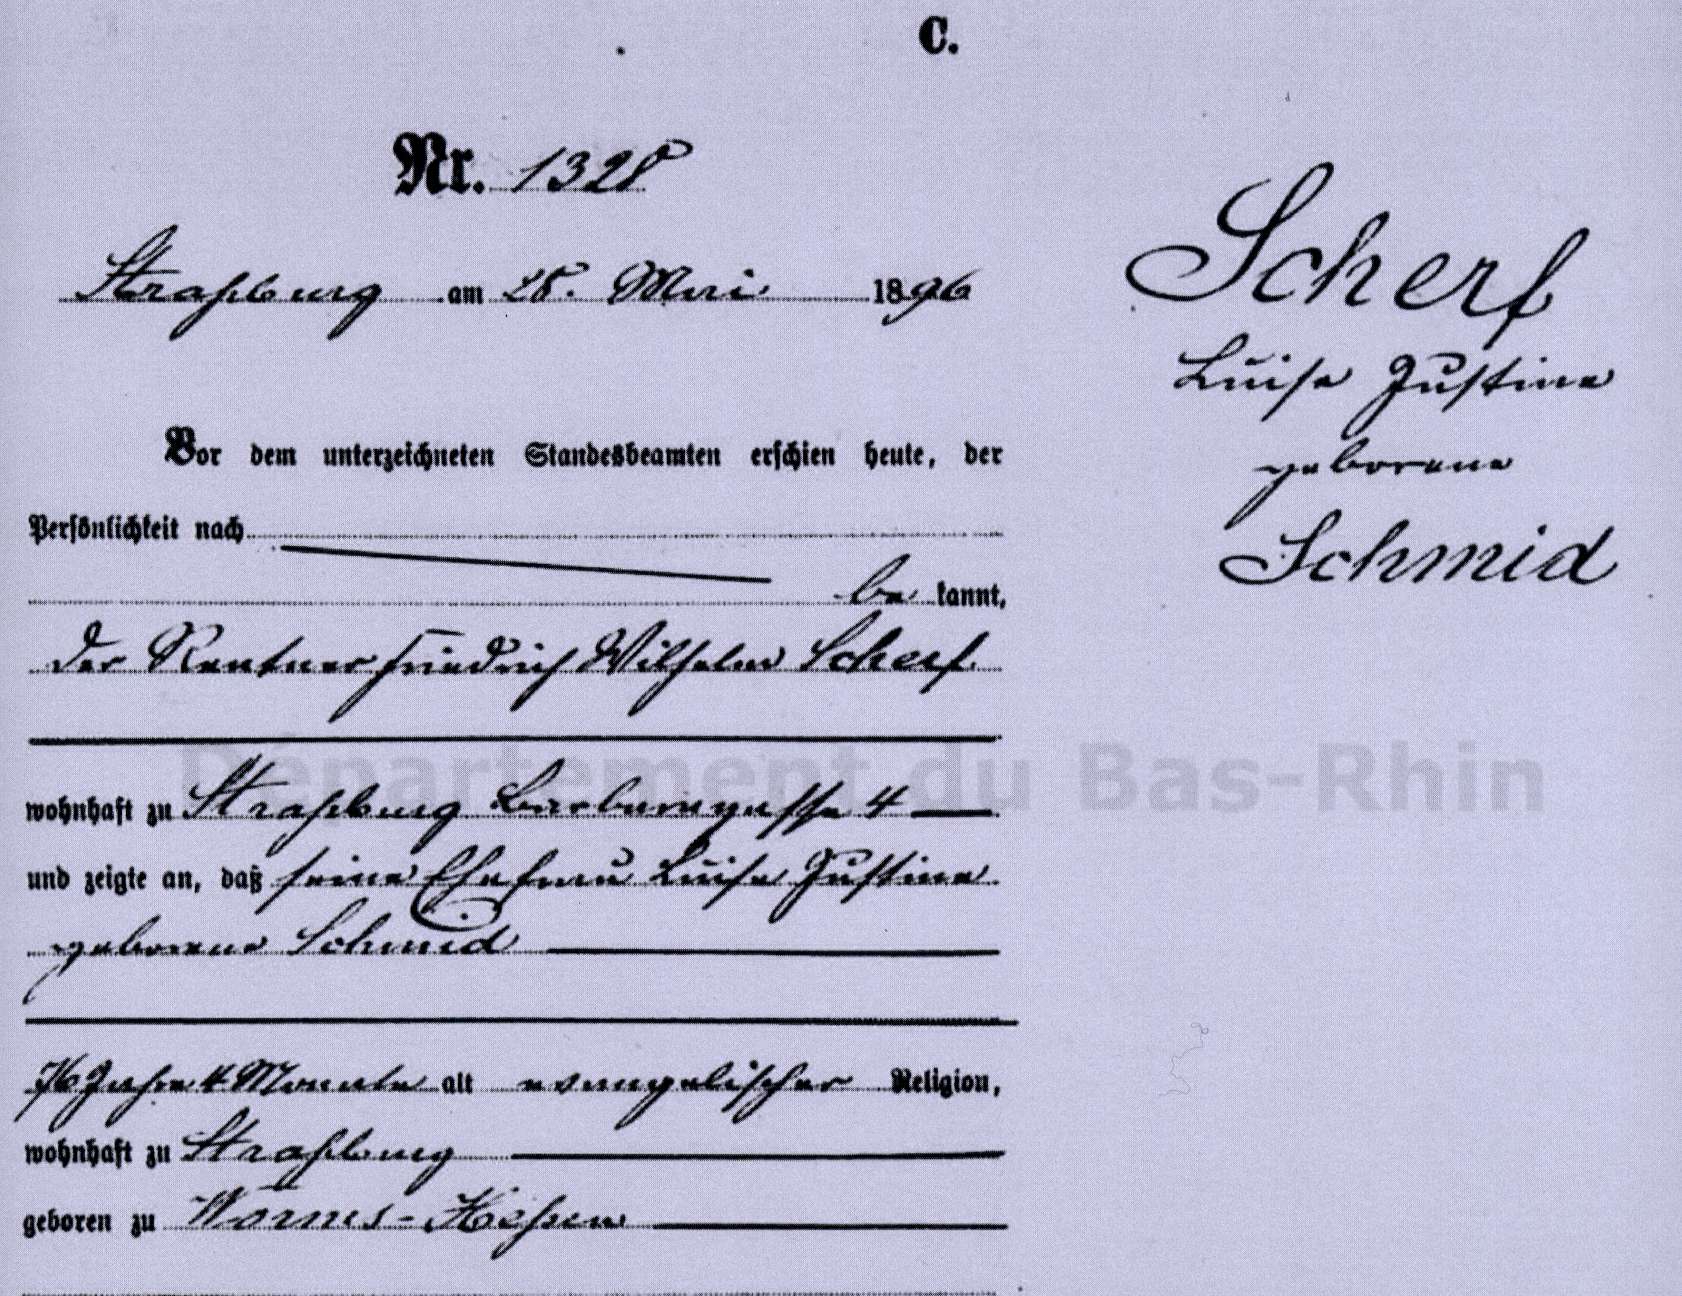 C.
Nr. 1328
Straßburg am 28. Mai 1896
Vor dem unterzeichneten Standesbeamten erschien heute, der
Persönlichkeit nach
be kannt,
der Rentner Friedrich Wilhelm Scherf
wohnhaft zu Straßburg Barbaragasse 4
und zeigte an, daß seine Ehefrau Luise Justine
geborene Schmid
Jahre 4 Monate alt evangelischer Religion,
wohnhaft zu Straßburg
geboren zu Worms-Heßen
Scherf
Luise Justine
geborene
Schmid
Département du Bas-Rhin